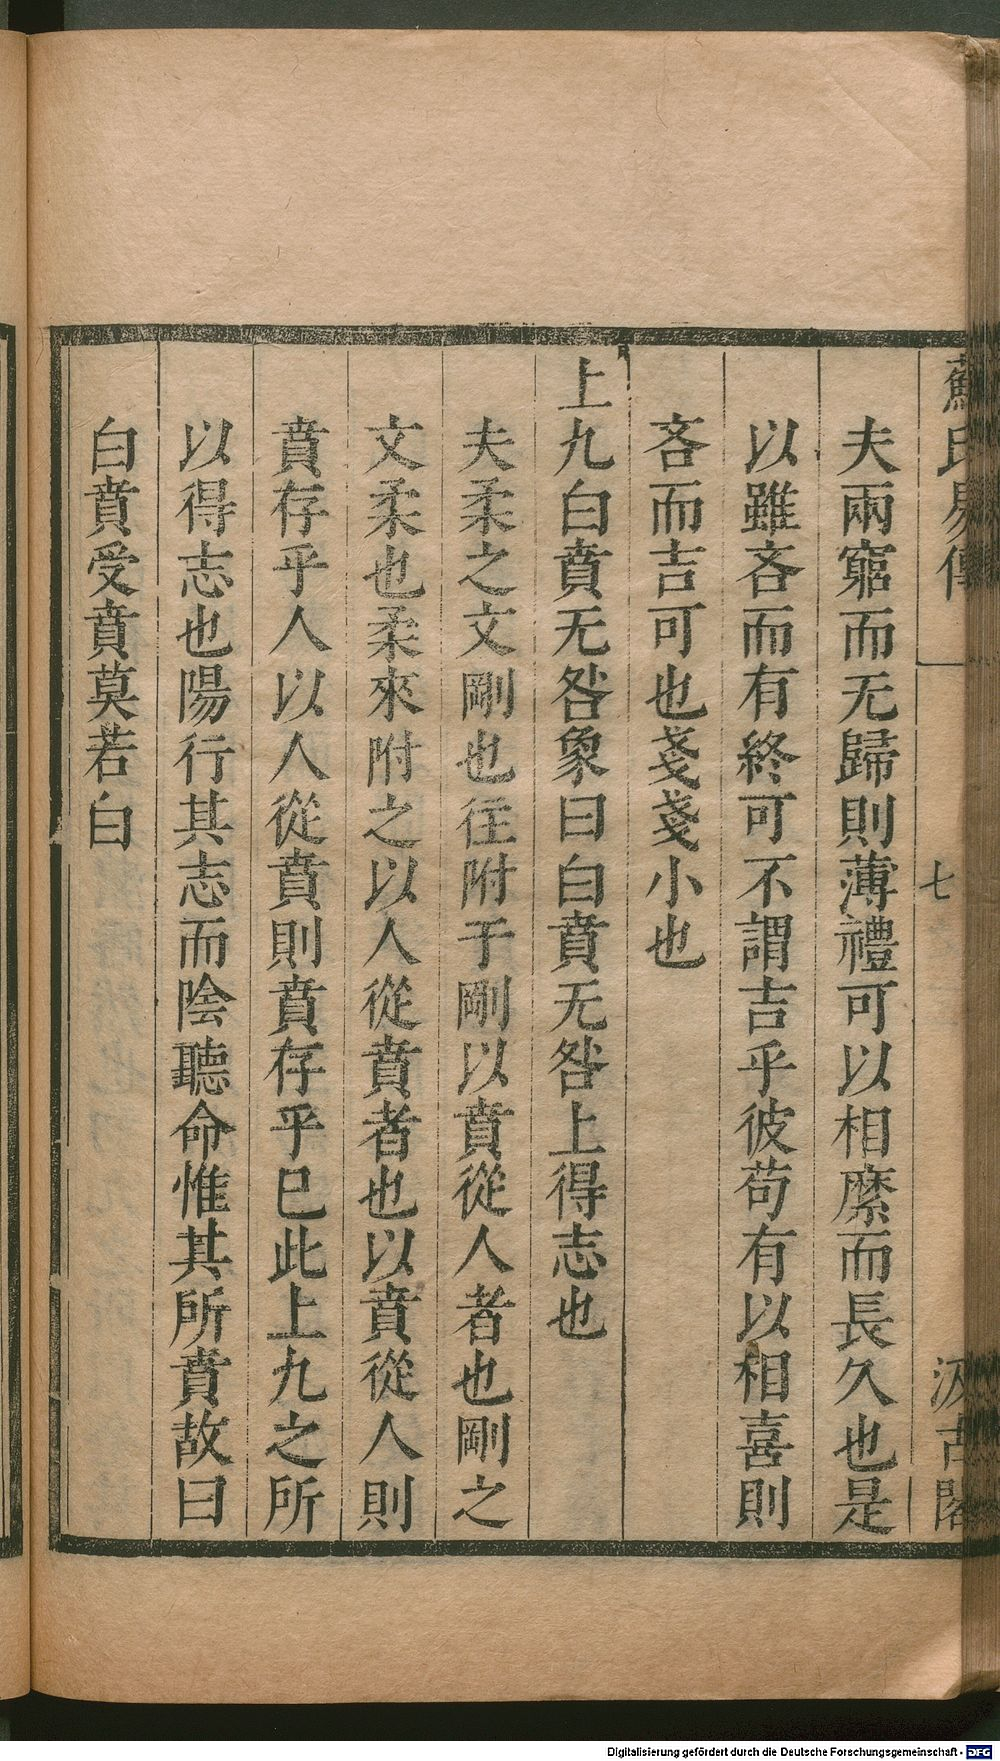 蘇氏易傳
七
汲古閣
夫兩窮而无歸則薄禮可以相縻而長久也是
以雖吝而有終可不謂吉乎彼苟有以相喜則
吝而吉可也戔戔小也
上九白賁无咎象曰白賁无咎上得志也
夫柔之文剛也往附于剛以賁從人者也剛之
文柔也柔來附之以人從賁者也以賁從人則
賁存乎人以人從賁則賁存乎巳此上九之所
以得志也陽行其志而陰聽命惟其所賁故曰
白賁受賁莫若白
Digitalisierung gefördert durch die Deutsche Forschungsgemeinschaft - DFG